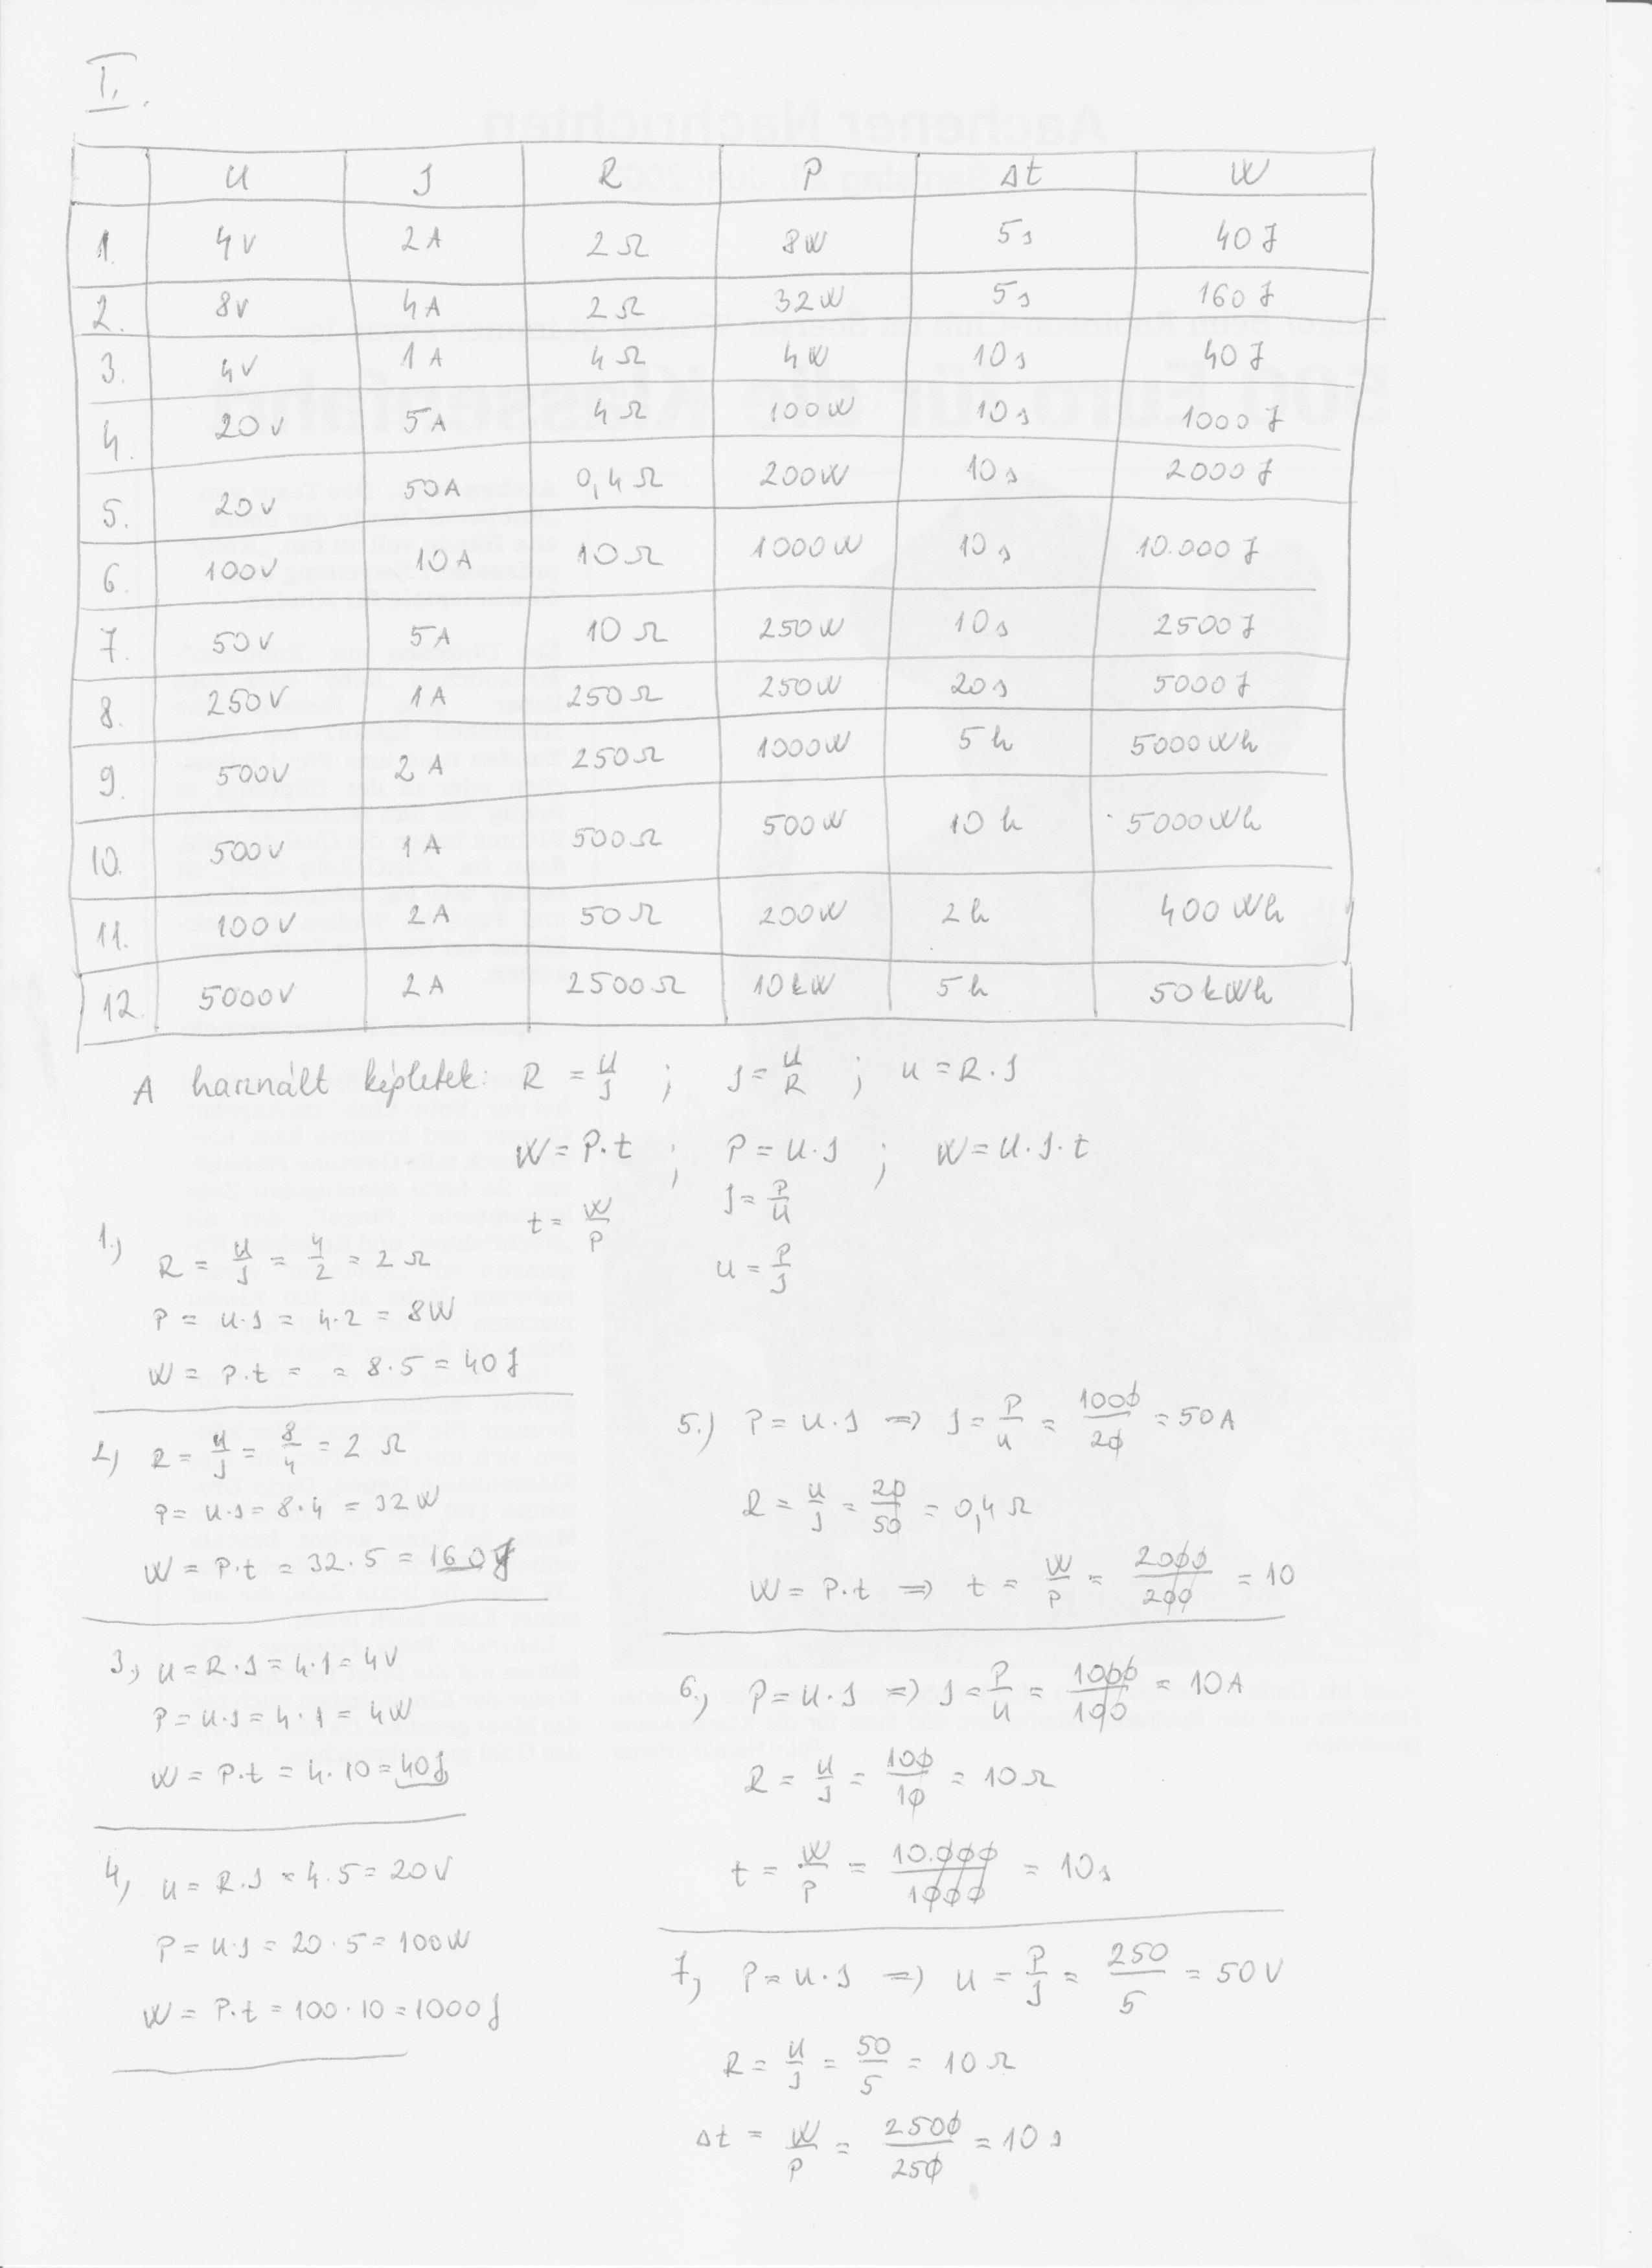 I.
U I R P Δt W
1. 4V 2A 2Ω 8W 5s 40J
2. 8V 4A 2Ω 32W 5s 160J
3. 4V 1A 4Ω 4W 10s 40J
4. 20V 5A 4Ω 100W 10s 1000J
5. 20V 50A 0,4Ω 200W 10s 2000J
6. 100V 10A 10Ω 1000W 10s 10.000J
7. 50V 5A 10Ω 250W 10s 2500J
8. 250V 1A 250Ω 250W 20s 5000J
9. 500V 2A 250Ω 1000W 5h 5000Wh
10. 500V 1A 500Ω 500W 10h 5000Wh
11. 100V 2A 50Ω 200W 2h 400Wh
12. 5000V 2A 2500Ω 10kW 5h 50kWh
A használt képletek: R = U/I ; I = U/R ; U = R·I
W = P·t ; P = U·I ; W = U·I·t
t = W/P I = P/U
U = P/I
1.) R = U/I = 4/2 = 2Ω
P = U·I = 4·2 = 8W
W = P·t = = 8·5 = 40J
2.) R = U/I = 8/4 = 2Ω
P = U·I = 8·4 = 32W
W = P·t = 32·5 = 160J
3.) U = R·I = 4·1 = 4V
P = U·I = 4·1 = 4W
W = P·t = 4·10 = 40J
4.) U = R·I = 4·5 = 20V
P = U·I = 20·5 = 100W
W = P·t = 100·10 = 1000J
5.) P = U·I => I = P/U = 1000/20 = 50A
R = U/I = 20/50 = 0,4Ω
W = P·t => t = W/P = 2000/200 = 10
6.) P = U·I => I = P/U = 1000/100 = 10A
R = U/I = 100/10 = 10Ω
t = W/P = 10.000/1000 = 10s
7.) P = U·I => U = P/I = 250/5 = 50V
R = U/I = 50/5 = 10Ω
Δt = W/P = 2500/250 = 10s